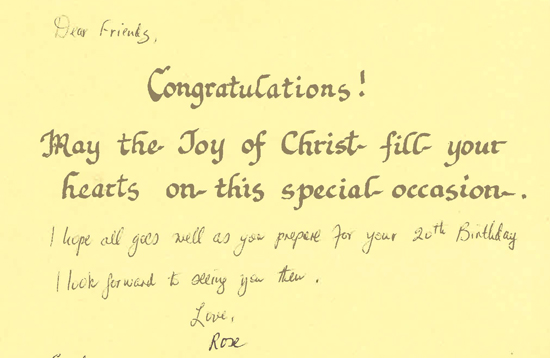 Dear Friends,
Congratulations!
May the Joy of Christ fill your
hearts on this special occasion.
I hope all goes well as you prepare for your 20th Birthday
I look forward to seeing you then.
Love,
Rose